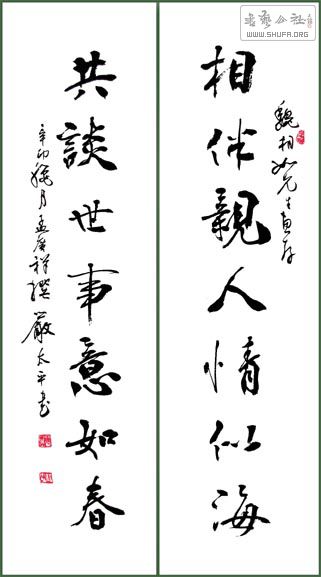 書藝公社
WWW.SHUFA.ORG
魏相如先生惠存
相伴親人情似海
共談世事意如春
辛卯桃月孟庆祥撰嚴太平書